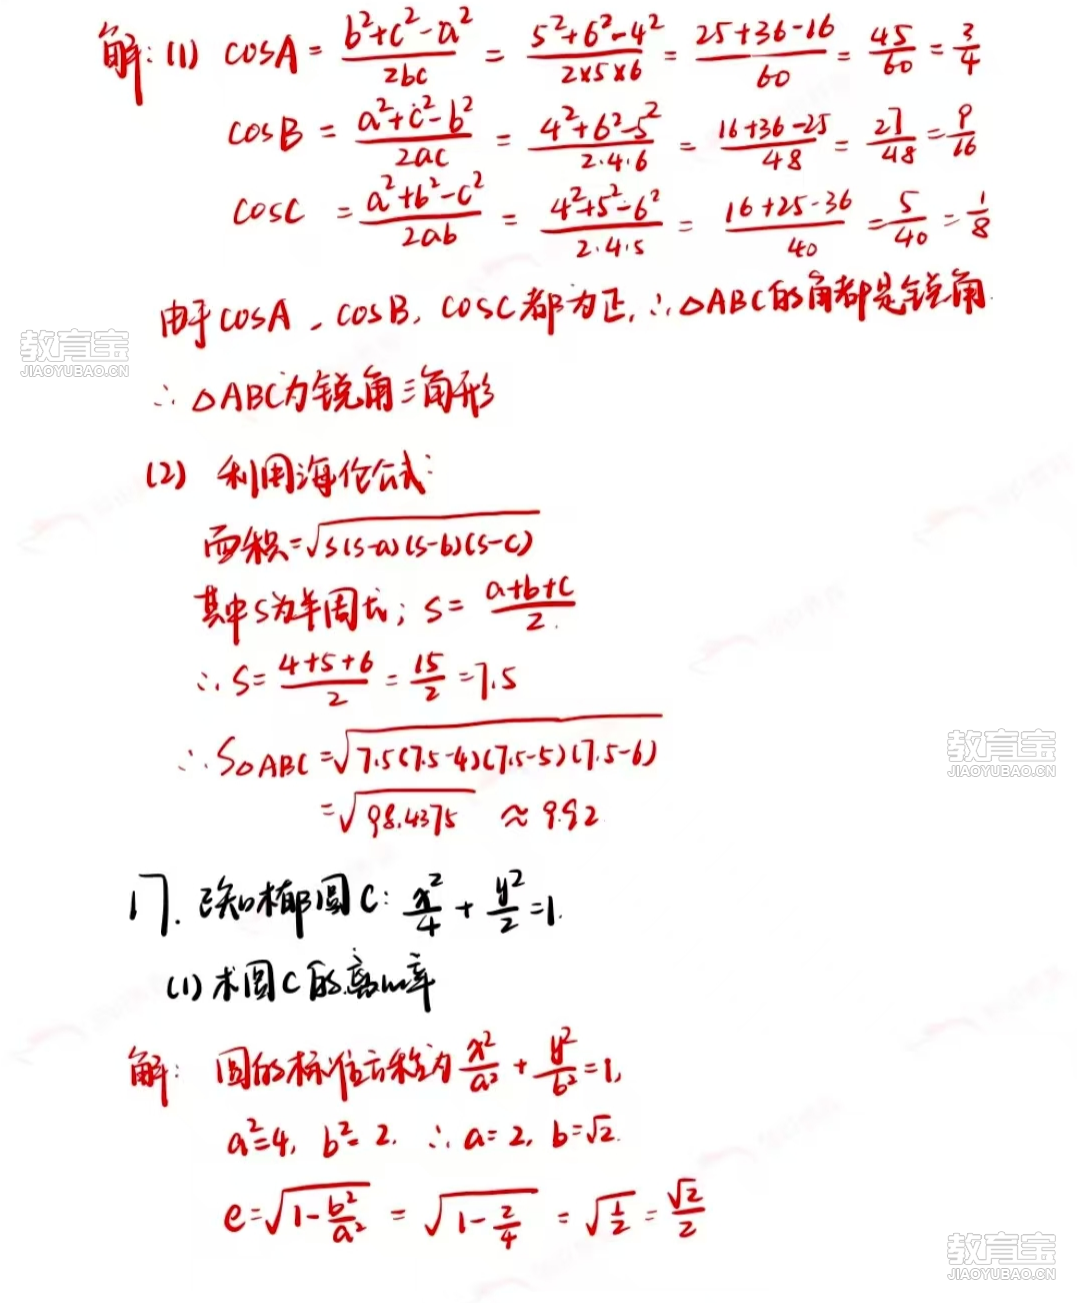 解: (1) cosA = (b²+c²-a²)/(2bc) = (5²+6²-4²)/(2×5×6) = (25+36-16)/60 = 45/60 = 3/4
cosB = (a²+c²-b²)/(2ac) = (4²+6²-5²)/(2·4·6) = (16+36-25)/48 = 27/48 = 9/16
cosC = (a²+b²-c²)/(2ab) = (4²+5²-6²)/(2·4·5) = (16+25-36)/40 = 5/40 = 1/8
由于cosA, cosB, cosC都为正, ∴△ABC的角都是锐角.
∴△ABC为锐角三角形
(2) 利用海伦公式:
面积=√(s(s-a)(s-b)(s-c))
其中s为半周长; s= (a+b+c)/2.
∴s= (4+5+6)/2 = 15/2 =7.5
∴S△ABC =√(7.5(7.5-4)(7.5-5)(7.5-6))
=√98.4375 ≈ 9.92
17. 已知椭圆C: x²/4 + y²/2 =1.
(1) 求圆C的离心率
解: 圆的标准方程为 x²/a² + y²/b² =1,
a²=4, b²=2. ∴a=2, b=√2.
e=√(1-b²/a²) = √(1-2/4) = √(1/2) = √2/2
教育宝
JIAOYUBAO.CN
教育宝
JIAOYUBAO.CN
教育宝
JIAOYUBAO.CN